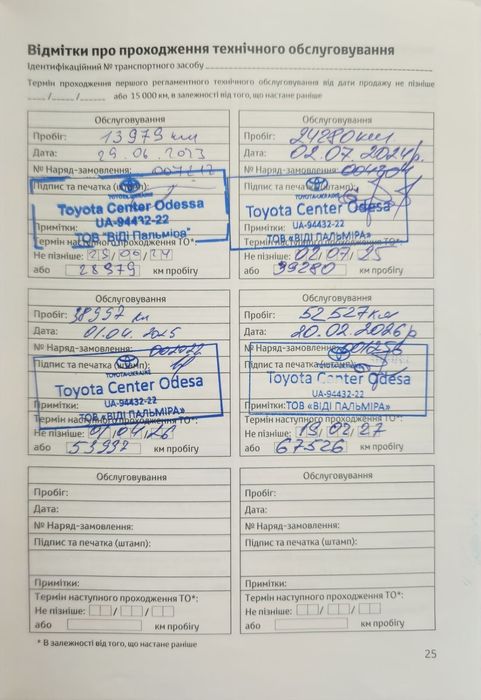 Відмітки про проходження технічного обслуговування
Ідентифікаційний № транспортного засобу
Термін проходження першого регламентного технічного обслуговування від дати продажу не пізніше
___/___/___ або 15 000 км, в залежності від того, що настане раніше
Обслуговування
Пробіг: 13979 км
Дата: 29.06.2023
№ Наряд-замовлення:
Підпис та печатка (штамп):
TOYOTA-UKRAINE
Toyota Center Odessa
UA-94432-22
ТОВ "ВіДі Пальміра"
Примітки:
Термін наступного проходження ТО*:
Не пізніше: 29/06/24
або 28979 км пробігу
Обслуговування
Пробіг: 24280 км
Дата: 02.07.2024р.
№ Наряд-замовлення: 004304
Підпис та печатка (штамп):
TOYOTA-UKRAINE
Toyota Center Odesa
UA-94432-22
ТОВ «ВІДІ ПАЛЬМІРА»
Примітки:
Термін наступного проходження ТО*:
Не пізніше: 02/07/25
або 39280 км пробігу
Обслуговування
Пробіг: 38997 км
Дата: 01.04.2025
№ Наряд-замовлення:
Підпис та печатка (штамп):
TOYOTA-UKRAINE
Toyota Center Odesa
UA-94432-22
ТОВ «ВІДІ ПАЛЬМІРА»
Примітки:
Термін наступного проходження ТО*:
Не пізніше: 01/04/26
або 53997 км пробігу
Обслуговування
Пробіг: 52527 км
Дата: 20.02.2026р
№ Наряд-замовлення:
Підпис та печатка (штамп):
TOYOTA-UKRAINE
Toyota Center Odesa
UA-94432-22
Примітки: ТОВ «ВІДІ ПАЛЬМІРА»
Термін наступного проходження ТО*:
Не пізніше: 19/02/27
або 67526 км пробігу
Обслуговування
Пробіг:
Дата:
№ Наряд-замовлення:
Підпис та печатка (штамп):
Примітки:
Термін наступного проходження ТО*:
Не пізніше: / /
або км пробігу
Обслуговування
Пробіг:
Дата:
№ Наряд-замовлення:
Підпис та печатка (штамп):
Примітки:
Термін наступного проходження ТО*:
Не пізніше: / /
або км пробігу
* В залежності від того, що настане раніше
25